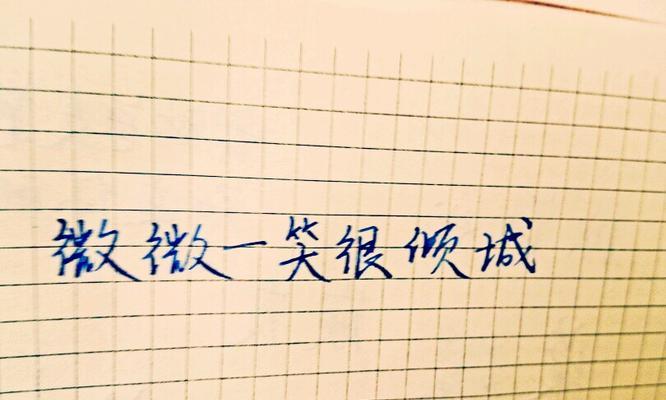 微微一笑很倾城